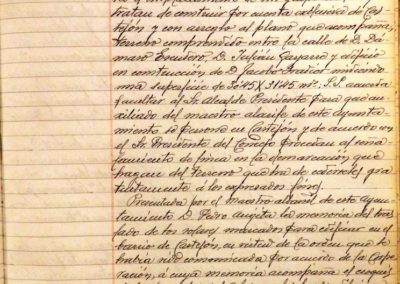 tratan de construir por cuenta exclusiva de Cas
tejón y con arreglo al plano que acompaña,
terreno comprendido entre la calle de D. Dá
maso Escudero, D. Julián Gayarre y edificio
en construcción de D. Jacobo
una superficie de
facultar al Sr. Alcalde Presidente para que au
xiliado del maestro alarife de este ayunta
miento se persone en Castejón y de acuerdo con
el Sr. Presidente del Concejo procedan al seña
lamiento de finca en la demarcación que
hagan del terreno que ha de cederles gra
tuitamente á los expresados fines
Presentada por el Maestro albañil de este ayun
tamiento D. Pedro la memoria del tras
lado de los solares marcados para edificar en el
barrio de Castejón, en virtud de la orden que le
había sido comunicada por acuerdo de la Corpo
ración, á cuya memoria acompaña el croquis